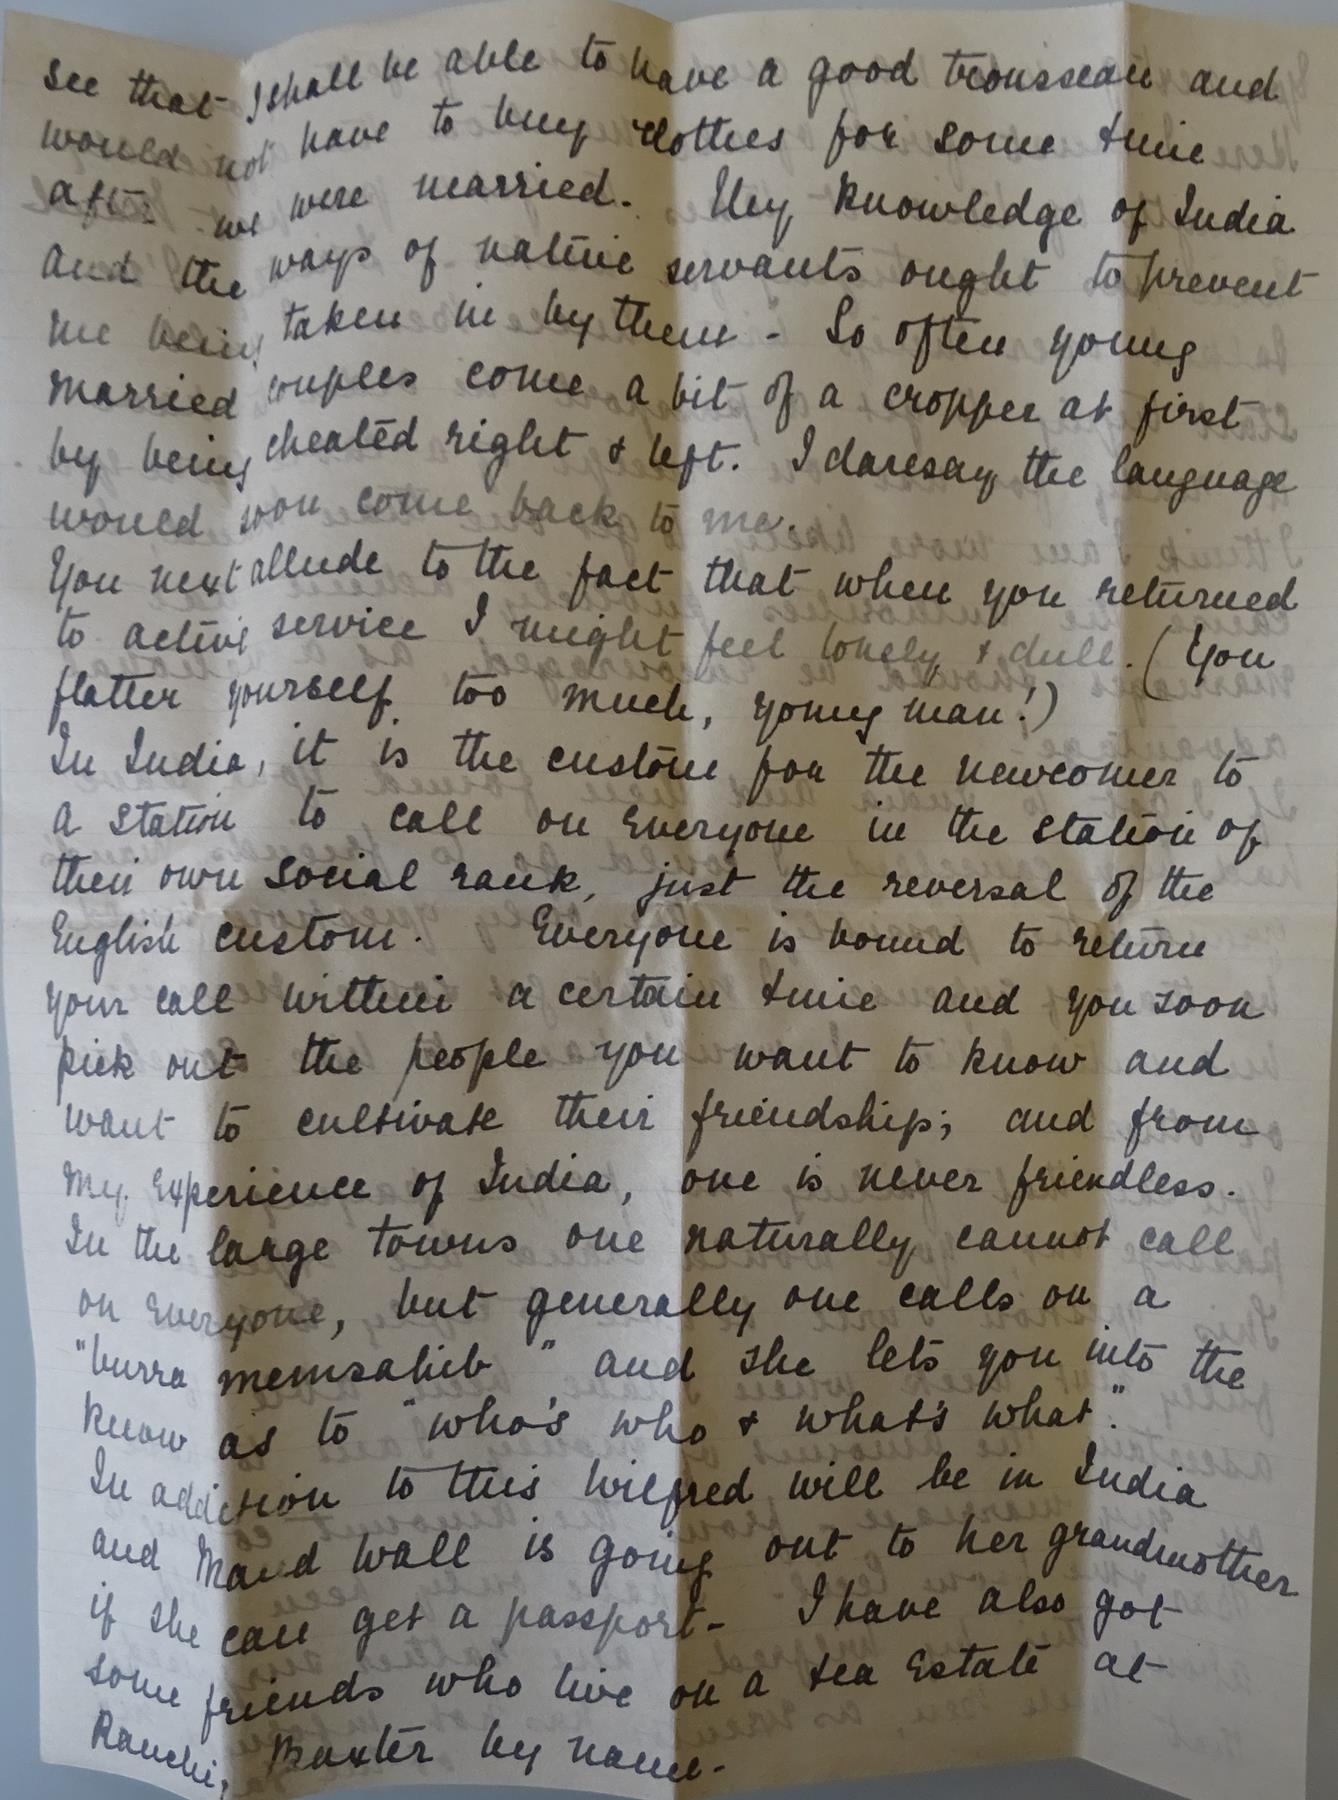 see that I shall be able to have a good trousseau and
would not have to buy clothes for some time
after we were married. My knowledge of India
and the ways of native servants ought to prevent
me being taken in by them - So often young
married couples come a bit of a cropper at first
by being cheated right & left. I daresay the language
would soon come back to me.
You next allude to the fact that when you returned
to active service I might feel lonely & dull. (You
flatter yourself too much, young man!)
In India, it is the custom for the newcomer to
a station to call on everyone in the station of
their own social rank, just the reversal of the
English custom. Everyone is bound to return
your call within a certain time and you soon
pick out the people you want to know and
want to cultivate their friendship; and from
my experience of India, one is never friendless.
In the large towns one naturally cannot call
on everyone, but generally one calls on a
"burra memsahib" and she lets you into the
know as to "who's who & what's what".
In addition to this Wilfred will be in India
and Maud Wall is going out to her grandmother
if she can get a passport - I have also got
some friends who live on a tea estate at
Ranchi, Baxter by name.